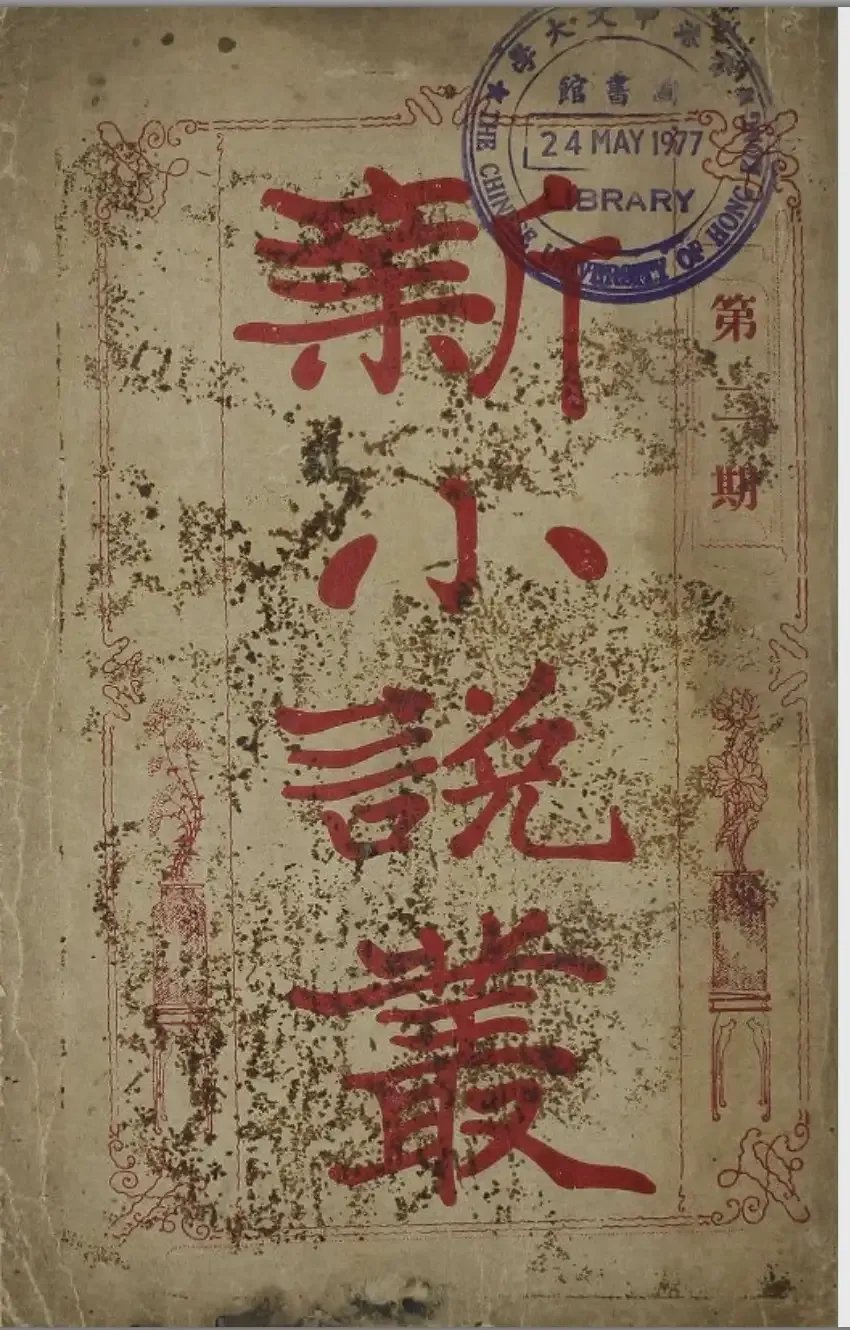 第二期
新小說叢
香港中文大學
圖書館
24 MAY 1977
LIBRARY
THE CHINESE UNIVERSITY OF HONG KONG